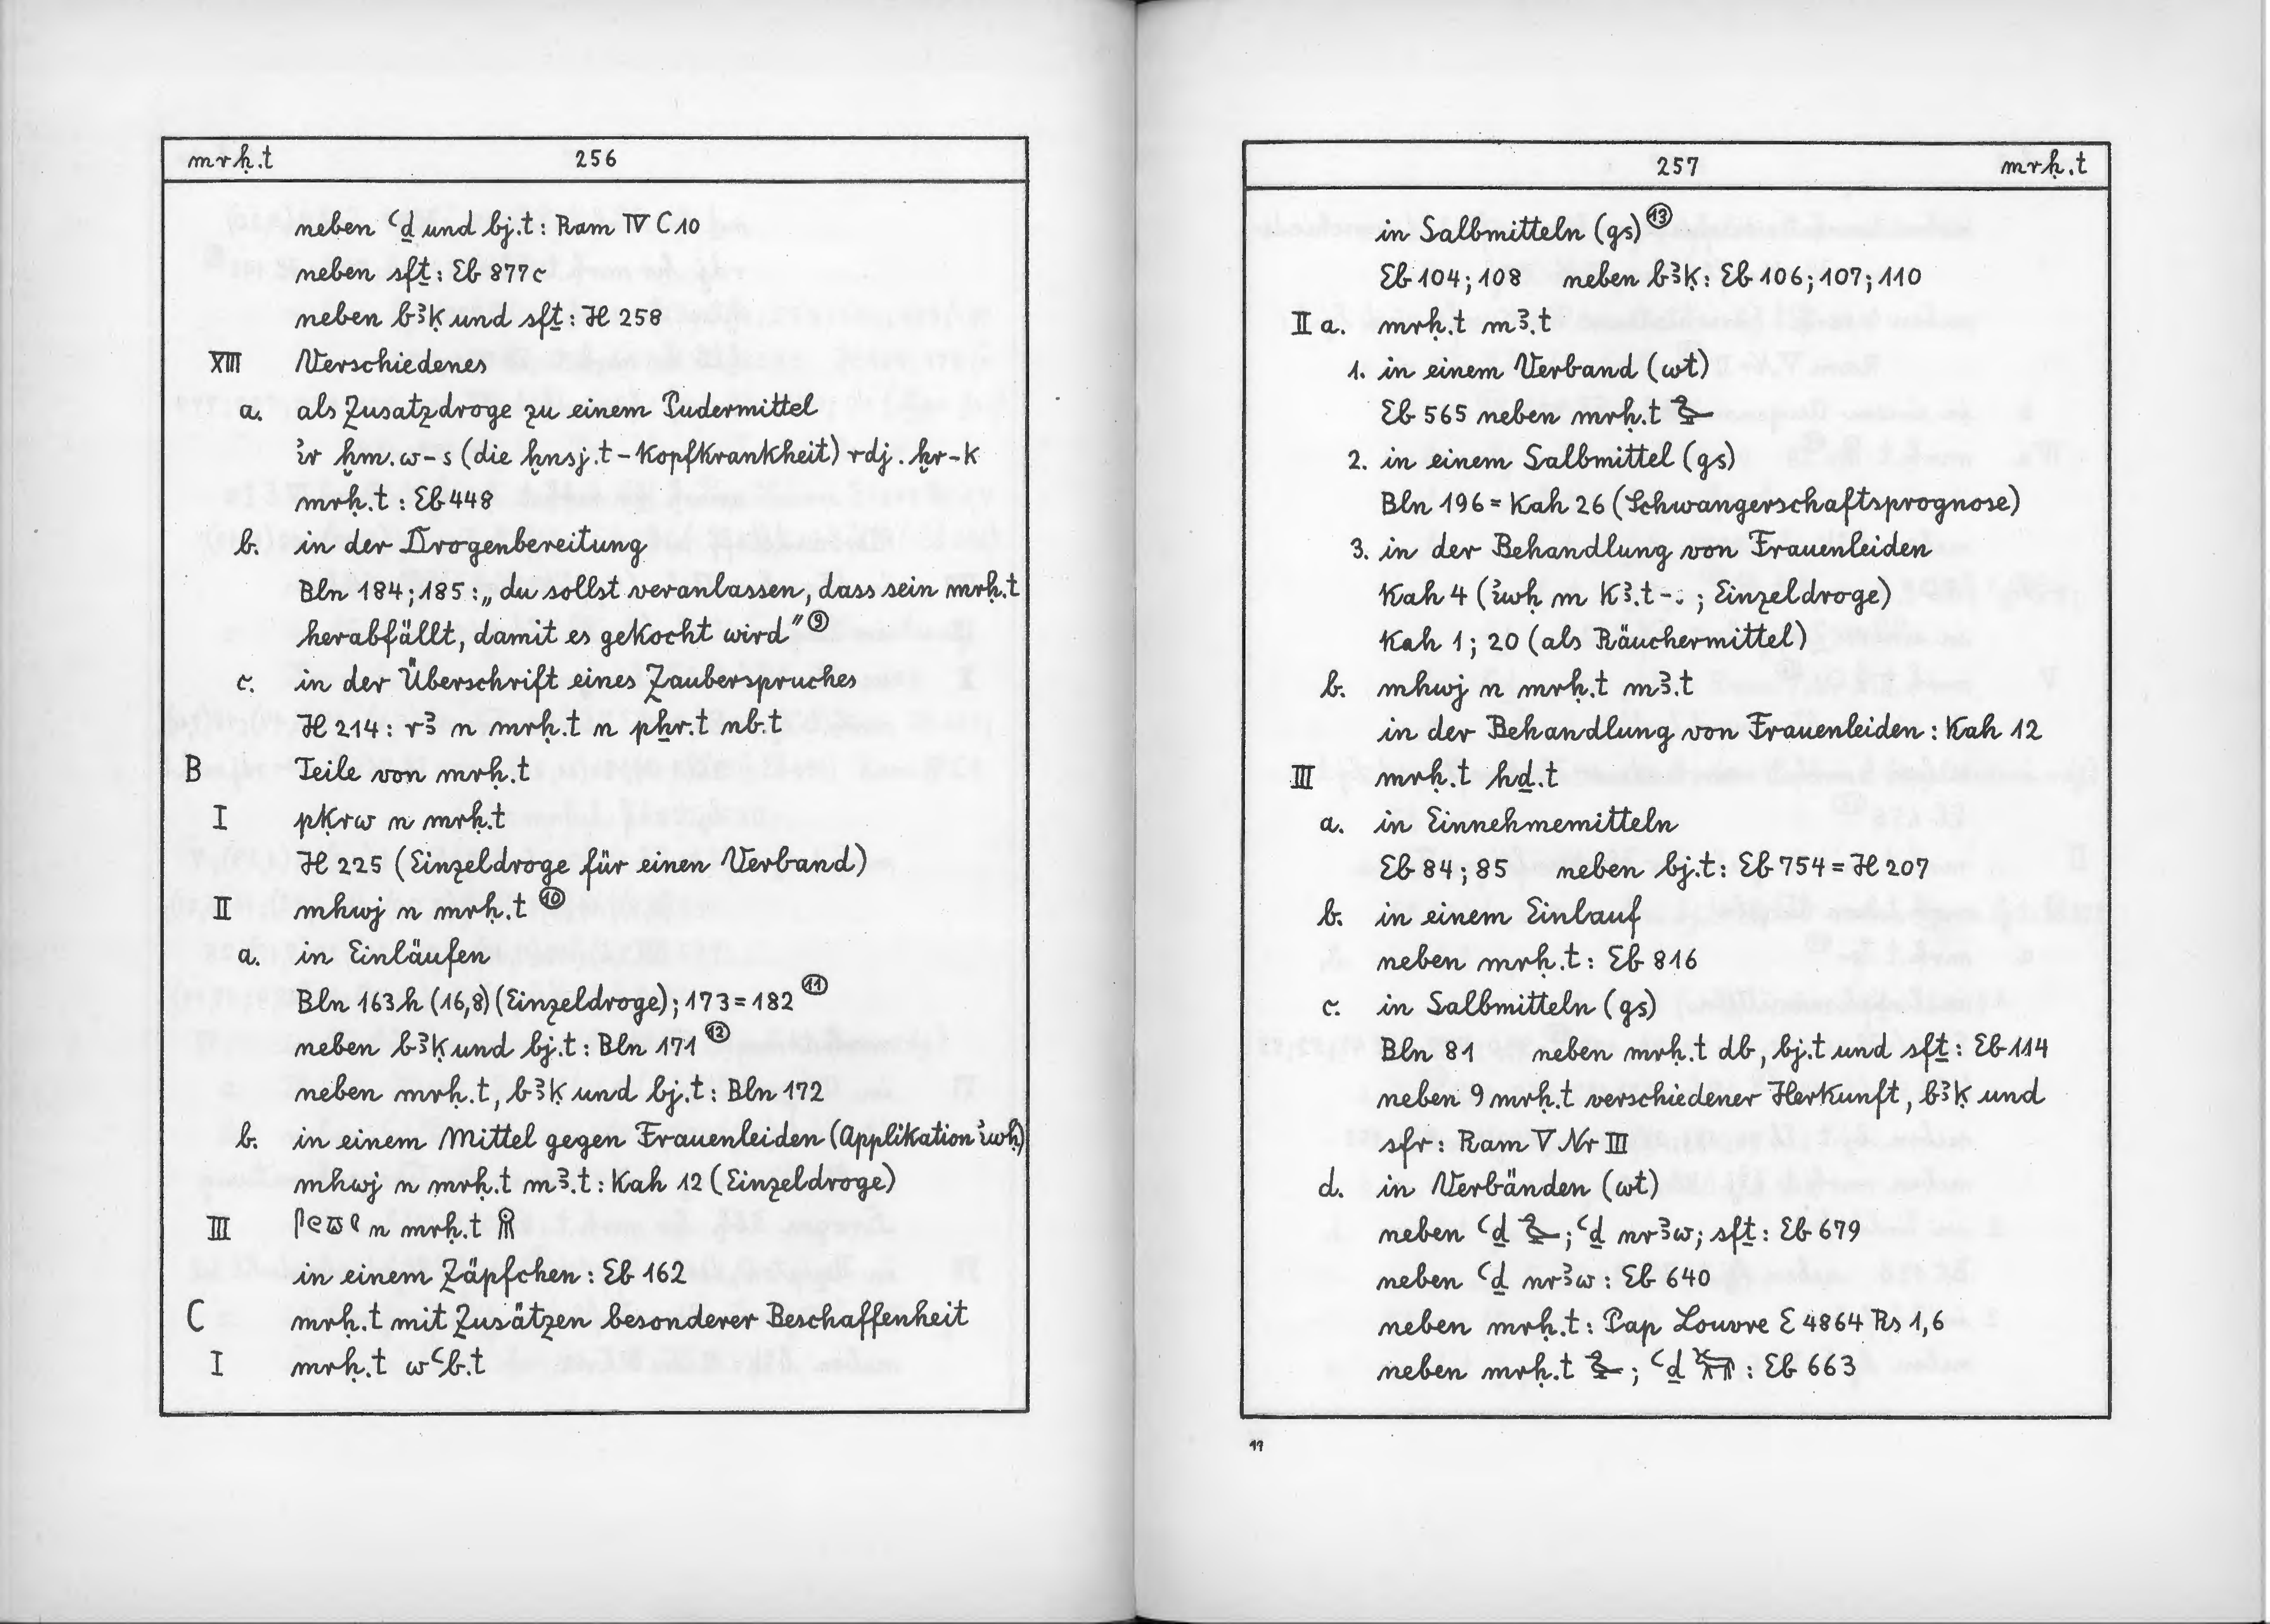 mrḥ.t 256
neben ꜥḏ und bj.t: Ram IV C 10
neben sfṯ: Eb 877c
neben bꜣḳ und sfṯ: H 258
XIII Verschiedenes
a. als Zusatzdroge zu einem Pudermittel
ı͗r ḫm.w-s (die ẖnsj.t-Kopfkrankheit) rdj.ḫr-k
mrḥ.t: Eb 448
b. in der Drogenbereitung
Bln 184; 185: „du sollst veranlassen, dass sein mrḥ.t
herabfällt, damit es gekocht wird" ⑨
c. in der Überschrift eines Zauberspruches
H 214: rꜣ n mrḥ.t n pẖr.t nb.t
B Teile von mrḥ.t
I pḳrw n mrḥ.t
H 225 (Einzeldroge für einen Verband)
II mhwj n mrḥ.t ⑩
a. in Einläufen
Bln 163h (16,8) (Einzeldroge); 173 = 182 ⑪
neben bꜣḳ und bj.t: Bln 171 ⑫
neben mrḥ.t, bꜣḳ und bj.t: Bln 172
b. in einem Mittel gegen Frauenleiden (Applikation ı͗wḥ)
mhwj n mrḥ.t mꜣ.t: Kah 12 (Einzeldroge)
III n mrḥ.t
in einem Zäpfchen: Eb 162
C mrḥ.t mit Zusätzen besonderer Beschaffenheit
I mrḥ.t wꜥb.t
257 mrḥ.t
in Salbmitteln (gs) ⑬
Eb 104; 108 neben bꜣḳ: Eb 106; 107; 110
II a. mrḥ.t mꜣ.t
1. in einem Verband (wt)
Eb 565 neben mrḥ.t
2. in einem Salbmittel (gs)
Bln 196 = Kah 26 (Schwangerschaftsprognose)
3. in der Behandlung von Frauenleiden
Kah 4 (ı͗wḥ m kꜣ.t-.. ; Einzeldroge)
Kah 1; 20 (als Räuchermittel)
b. mhwj n mrḥ.t mꜣ.t
in der Behandlung von Frauenleiden: Kah 12
III mrḥ.t hḏ.t
a. in Einnehmemitteln
Eb 84; 85 neben bj.t: Eb 754 = H 207
b. in einem Einlauf
neben mrḥ.t: Eb 816
c. in Salbmitteln (gs)
Bln 81 neben mrḥ.t db, bj.t und sfṯ: Eb 114
neben 9 mrḥ.t verschiedener Herkunft, bꜣḳ und
sfr: Ram V Nr III
d. in Verbänden (wt)
neben ꜥḏ ; ꜥḏ nrꜣw; sfṯ: Eb 679
neben ꜥḏ nrꜣw: Eb 640
neben mrḥ.t: Pap Louvre E 4864 Rs 1,6
neben mrḥ.t ; ꜥḏ : Eb 663
17